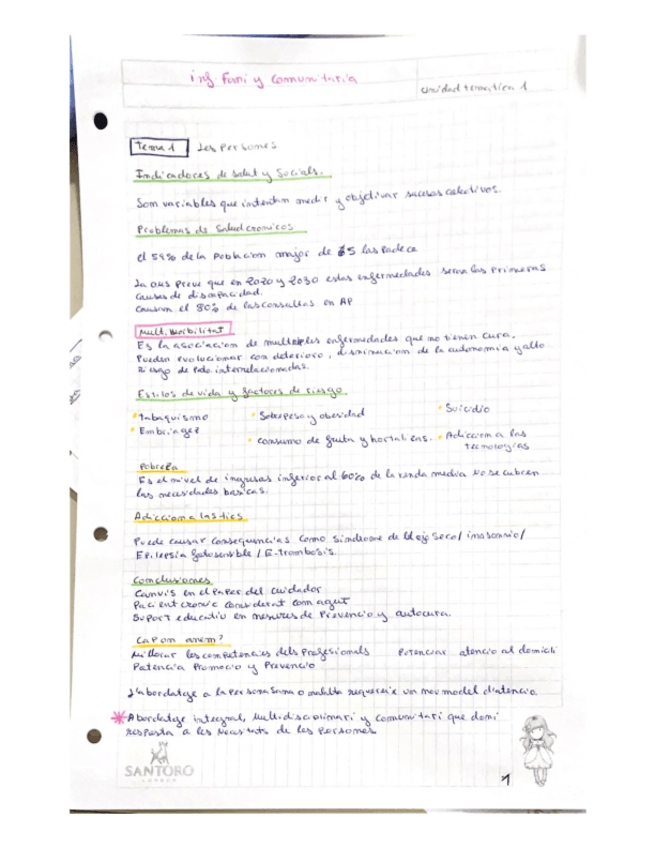 inf. Fami y comunitaria
Unidad tematica 1
Tema 1 Les Persones
Indicadores de salut y Socials.
Son variables que intentan medir y objetivar sucesos colectivos.
Problemas de Salud cronicos
el 59% de la poblacion major de 65 las padece
La OMS preve que en 2020 y 2030 estas enfermedades seran las primeras
causas de discapacidad.
Causan el 80% de las consultas en AP
Multimorbilitat
Es la asociacion de multiples enfermedades que no tienen cura.
Pueden evolucionar con deterioro, disminucion de la autonomia y alto
riesgo de interrelacionadas.
Estilos de vida y factores de riesgo
Tabaquismo
Sobrepeso y obesidad
Suicidio
Embriagez
consumo de fruta y hortalizas.
Adiccion a las
tecnologias
Pobreza
Es el nivel de ingresos inferior al 60% de la renda media No se cubren
las necesidades basicas.
Adiccion a las tics
Puede causar consequencias como sindrome de l'ojo seco / insomnio /
Epilepsia fotosensible / E-trombosis.
Conclusiones
Canvis en el paper del cuidador
Pacient cronic considerat com agut
Suport educatiu en mesures de Prevencio y autocura.
Cap on anem?
Millorar les competencies dels Profesionals Potenciar atencio al domicili
Potencia Promocio y Prevencio
L'abordatge a la persona sana o malalta requereix un nou model d'atencio.
Abordatge integral, Multidisciplinari y comunitari que doni
resposta a les necesitats de les persones
SANTORO
LONDON
1